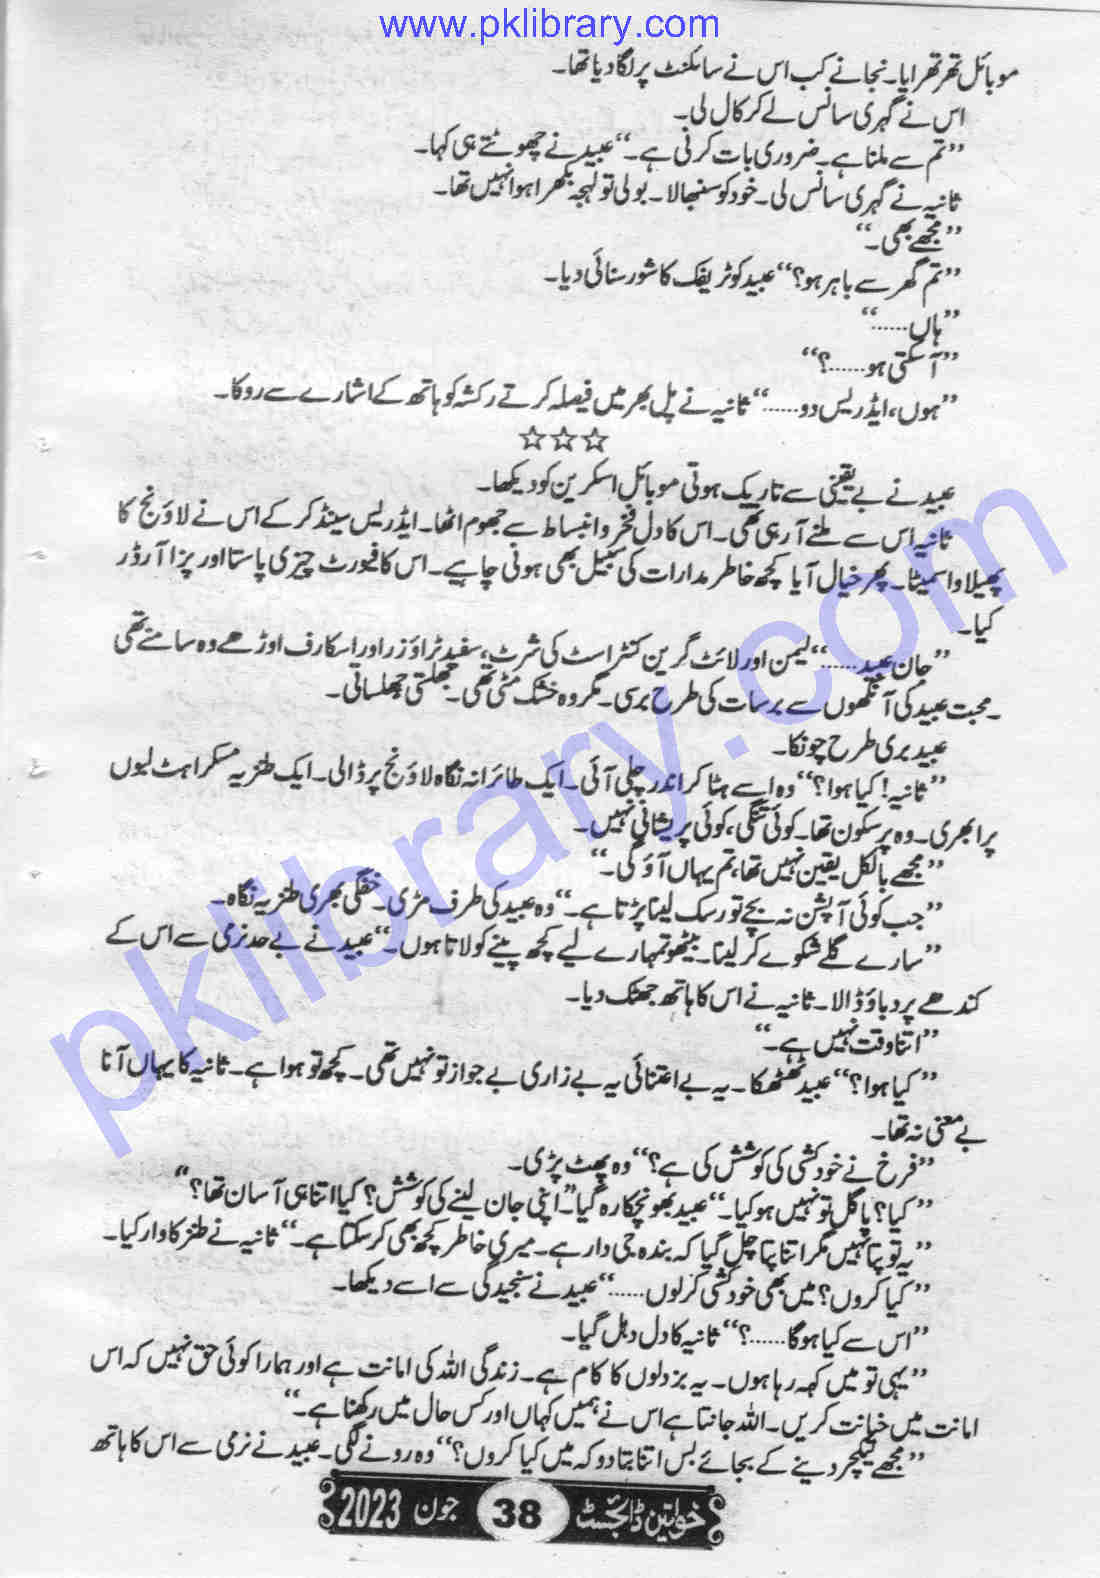 www.pklibrary.com
موبائل تھرتھرایا۔ نجانے کب اس نے سائلنٹ پر لگا دیا تھا۔
اس نے گہری سانس لے کر کال لی۔
”تم سے ملنا ہے۔ ضروری بات کرنی ہے۔“ عبید نے چھوٹتے ہی کہا۔
ثانیہ نے گہری سانس لی۔ خود کو سنبھالا۔ بولی تو لہجہ بکھرا ہوا نہیں تھا۔
”مجھے بھی۔“
”تم گھر سے باہر ہو؟“ عبید کو ٹریفک کا شور سنائی دیا۔
”ہاں......“
”آ سکتی ہو......؟“
”ہوں، ایڈریس دو......“ ثانیہ نے پل بھر میں فیصلہ کرتے رکشہ کو ہاتھ کے اشارے سے روکا۔
☆☆☆
عبید نے بے یقینی سے تاریک ہوتی موبائل اسکرین کو دیکھا۔
ثانیہ اس سے ملنے آ رہی تھی۔ اس کا دل فخر و انبساط سے جھوم اٹھا۔ ایڈریس سینڈ کر کے اس نے لاؤنج کا
پھیلاوا سمیٹا۔ پھر خیال آیا کچھ خاطر مدارات کی سبیل بھی ہونی چاہیے۔ اس کا فیورٹ چیزی پاستا اور پزا آرڈر
کیا۔
”جان عبید......“ لیمن اور لائٹ گرین کنٹراسٹ کی شرٹ، سفید ٹراؤزر اور اسکارف اوڑھے وہ سامنے تھی
۔ محبت عبید کی آنکھوں سے برسات کی طرح برسی۔ مگر وہ خشک مٹی تھی۔ جھلستی جھلساتی۔
عبید بری طرح چونکا۔
”ثانیہ! کیا ہوا؟“ وہ اسے ہٹا کر اندر چلی آئی۔ ایک طائرانہ نگاہ لاؤنج پر ڈالی۔ ایک طنزیہ مسکراہٹ لبوں
پر ابھری۔ وہ پرسکون تھا۔ کوئی تنگی، کوئی پریشانی نہیں۔
”مجھے بالکل یقین نہیں تھا، تم یہاں آؤ گی۔“
”جب کوئی آپشن نہ بچے تو رسک لینا پڑتا ہے۔“ وہ عبید کی طرف مڑی۔ خفگی بھری طنزیہ نگاہ۔
”سارے گلے شکوے کر لینا۔ بیٹھو تمہارے لیے کچھ پینے کو لاتا ہوں۔“ عبید نے بے حد نرمی سے اس کے
کندھے پر دباؤ ڈالا۔ ثانیہ نے اس کا ہاتھ جھٹک دیا۔
”اتنا وقت نہیں ہے۔“
”کیا ہوا؟“ عبید ٹھٹھکا۔ یہ بے اعتنائی یہ بے زاری بے جواز تو نہیں تھی۔ کچھ تو ہوا ہے۔ ثانیہ کا یہاں آنا
بے معنی نہ تھا۔
”فرخ نے خودکشی کی کوشش کی ہے؟“ وہ پھٹ پڑی۔
”کیا؟ پاگل تو نہیں ہو گیا۔“ عبید بھونچکا رہ گیا۔ ”اپنی جان لینے کی کوشش؟ کیا اتنا ہی آسان تھا؟“
”یہ تو پتا نہیں مگر اتنا پتا چل گیا کہ بندہ جی دار ہے۔ میری خاطر کچھ بھی کر سکتا ہے۔“ ثانیہ نے طنز کا وار کیا۔
”کیا کروں؟ میں بھی خودکشی کر لوں......“ عبید نے سنجیدگی سے اسے دیکھا۔
”اس سے کیا ہو گا......؟“ ثانیہ کا دل دہل گیا۔
”یہی تو میں کہہ رہا ہوں۔ یہ بزدلوں کا کام ہے۔ زندگی اللہ کی امانت ہے اور ہمارا کوئی حق نہیں کہ اس
امانت میں خیانت کریں۔ اللہ جانتا ہے اس نے ہمیں کہاں اور کس حال میں رکھنا ہے۔“
”مجھے لیکچر دینے کے بجائے بس اتنا بتا دو کہ میں کیا کروں؟“ وہ رونے لگی۔ عبید نے نرمی سے اس کا ہاتھ
خواتین ڈائجسٹ 38 جون 2023
pklibrary.com